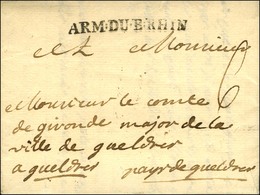 ARM·DU·B·RHIN
A Monsieur
Monsieur le comte 6
de gironde major de la
ville de gueldres
a gueldres pays de gueldres